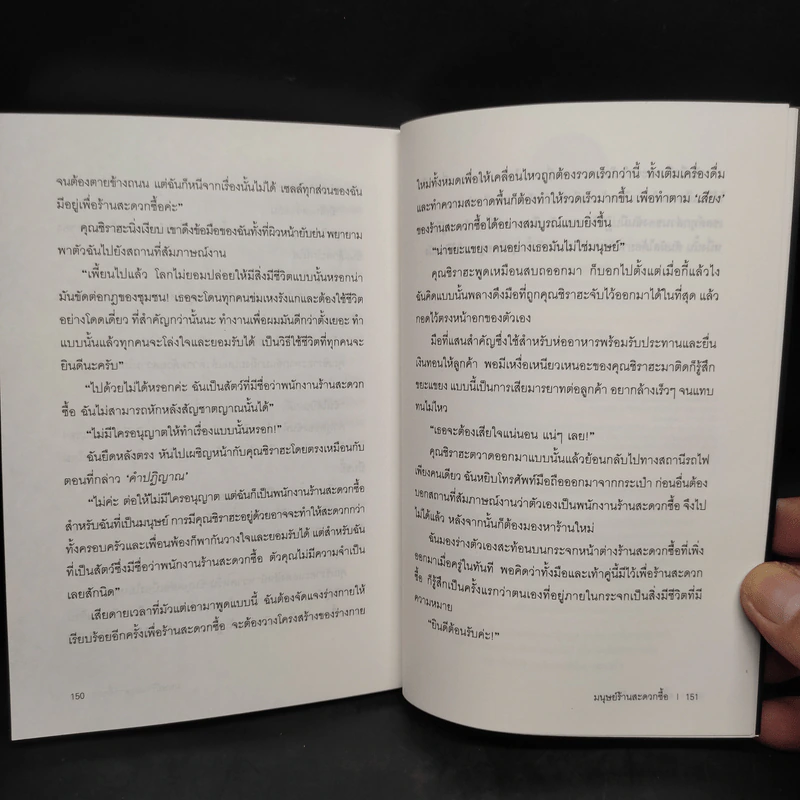 จนต้องตายข้างถนน แต่ฉันก็หนีจากเรื่องนั้นไม่ได้ เซลล์ทุกส่วนของฉัน
มีอยู่เพื่อร้านสะดวกซื้อค่ะ”
คุณชิราฮะนิ่งเงียบ เขาดึงข้อมือของฉันทั้งที่ผิวหน้ายับย่น พยายาม
พาตัวฉันไปยังสถานที่สัมภาษณ์งาน
“เพี้ยนไปแล้ว โลกไม่ยอมปล่อยให้มีสิ่งมีชีวิตแบบนั้นหรอกน่า
มันขัดต่อกฎของชุมชน! เธอจะโดนทุกคนข่มเหงรังแกและต้องใช้ชีวิต
อย่างโดดเดี่ยว ที่สำคัญกว่านั้นนะ ทำงานเพื่อผมมันดีกว่าตั้งเยอะ ทำ
แบบนั้นแล้วทุกคนจะโล่งใจและยอมรับได้ เป็นวิธีใช้ชีวิตที่ทุกคนจะ
ยินดีนะครับ”
“ไปด้วยไม่ได้หรอกค่ะ ฉันเป็นสัตว์ที่มีชื่อว่าพนักงานร้านสะดวก
ซื้อ ฉันไม่สามารถหักหลังสัญชาตญาณนั้นได้”
“ไม่มีใครอนุญาตให้ทำเรื่องแบบนั้นหรอก!”
ฉันยืดหลังตรง หันไปเผชิญหน้ากับคุณชิราฮะโดยตรงเหมือนกับ
ตอนที่กล่าว ‘คำปฏิญาณ’
“ไม่ค่ะ ต่อให้ไม่มีใครอนุญาต แต่ฉันก็เป็นพนักงานร้านสะดวกซื้อ
สำหรับฉันที่เป็นมนุษย์ การมีคุณชิราฮะอยู่ด้วยอาจจะทำให้สะดวกกว่า
ทั้งครอบครัวและเพื่อนพ้องก็พากันวางใจและยอมรับได้ แต่สำหรับฉัน
ที่เป็นสัตว์ซึ่งมีชื่อว่าพนักงานร้านสะดวกซื้อ ตัวคุณไม่มีความจำเป็น
เลยสักนิด”
เสียดายเวลาที่มัวแต่เอามาพูดแบบนี้ ฉันต้องจัดแจงร่างกายให้
เรียบร้อยอีกครั้งเพื่อร้านสะดวกซื้อ จะต้องวางโครงสร้างของร่างกาย
150
ใหม่ทั้งหมดเพื่อให้เคลื่อนไหวถูกต้องรวดเร็วกว่านี้ ทั้งเติมเครื่องดื่ม
และทำความสะอาดพื้นก็ต้องทำให้รวดเร็วมากขึ้น เพื่อทำตาม ‘เสียง’
ของร้านสะดวกซื้อได้อย่างสมบูรณ์แบบยิ่งขึ้น
“น่าขยะแขยง คนอย่างเธอมันไม่ใช่มนุษย์”
คุณชิราฮะพูดเหมือนสบถออกมา ก็บอกไปตั้งแต่เมื่อกี้แล้วไง
ฉันคิดแบบนั้นพลางดึงมือที่ถูกคุณชิราฮะจับไว้ออกมาได้ในที่สุด แล้ว
กอดไว้ตรงหน้าอกของตัวเอง
มือที่แสนสำคัญซึ่งใช้สำหรับห่ออาหารพร้อมรับประทานและยื่น
เงินทอนให้ลูกค้า พอมีเหงื่อเหนียวเหนอะของคุณชิราฮะมาติดก็รู้สึก
ขยะแขยง แบบนี้เป็นการเสียมารยาทต่อลูกค้า อยากล้างเร็วๆ จนแทบ
ทนไม่ไหว
“เธอจะต้องเสียใจแน่นอน แน่ๆ เลย!”
คุณชิราฮะตวาดออกมาแบบนั้นแล้วย้อนกลับไปทางสถานีรถไฟ
เพียงคนเดียว ฉันหยิบโทรศัพท์มือถือออกมาจากกระเป๋า ก่อนอื่นต้อง
บอกสถานที่สัมภาษณ์งานว่าตัวเองเป็นพนักงานร้านสะดวกซื้อ จึงไป
ไม่ได้แล้ว หลังจากนั้นก็ต้องมองหาร้านใหม่
ฉันมองร่างตัวเองสะท้อนบนกระจกหน้าต่างร้านสะดวกซื้อที่เพิ่ง
ออกมาเมื่อครู่ในทันที พอคิดว่าทั้งมือและเท้าคู่นี้มีไว้เพื่อร้านสะดวก
ซื้อ ก็รู้สึกเป็นครั้งแรกว่าตนเองที่อยู่ภายในกระจกเป็นสิ่งมีชีวิตที่มี
ความหมาย
“ยินดีต้อนรับค่ะ!”
มนุษย์ร้านสะดวกซื้อ | 151